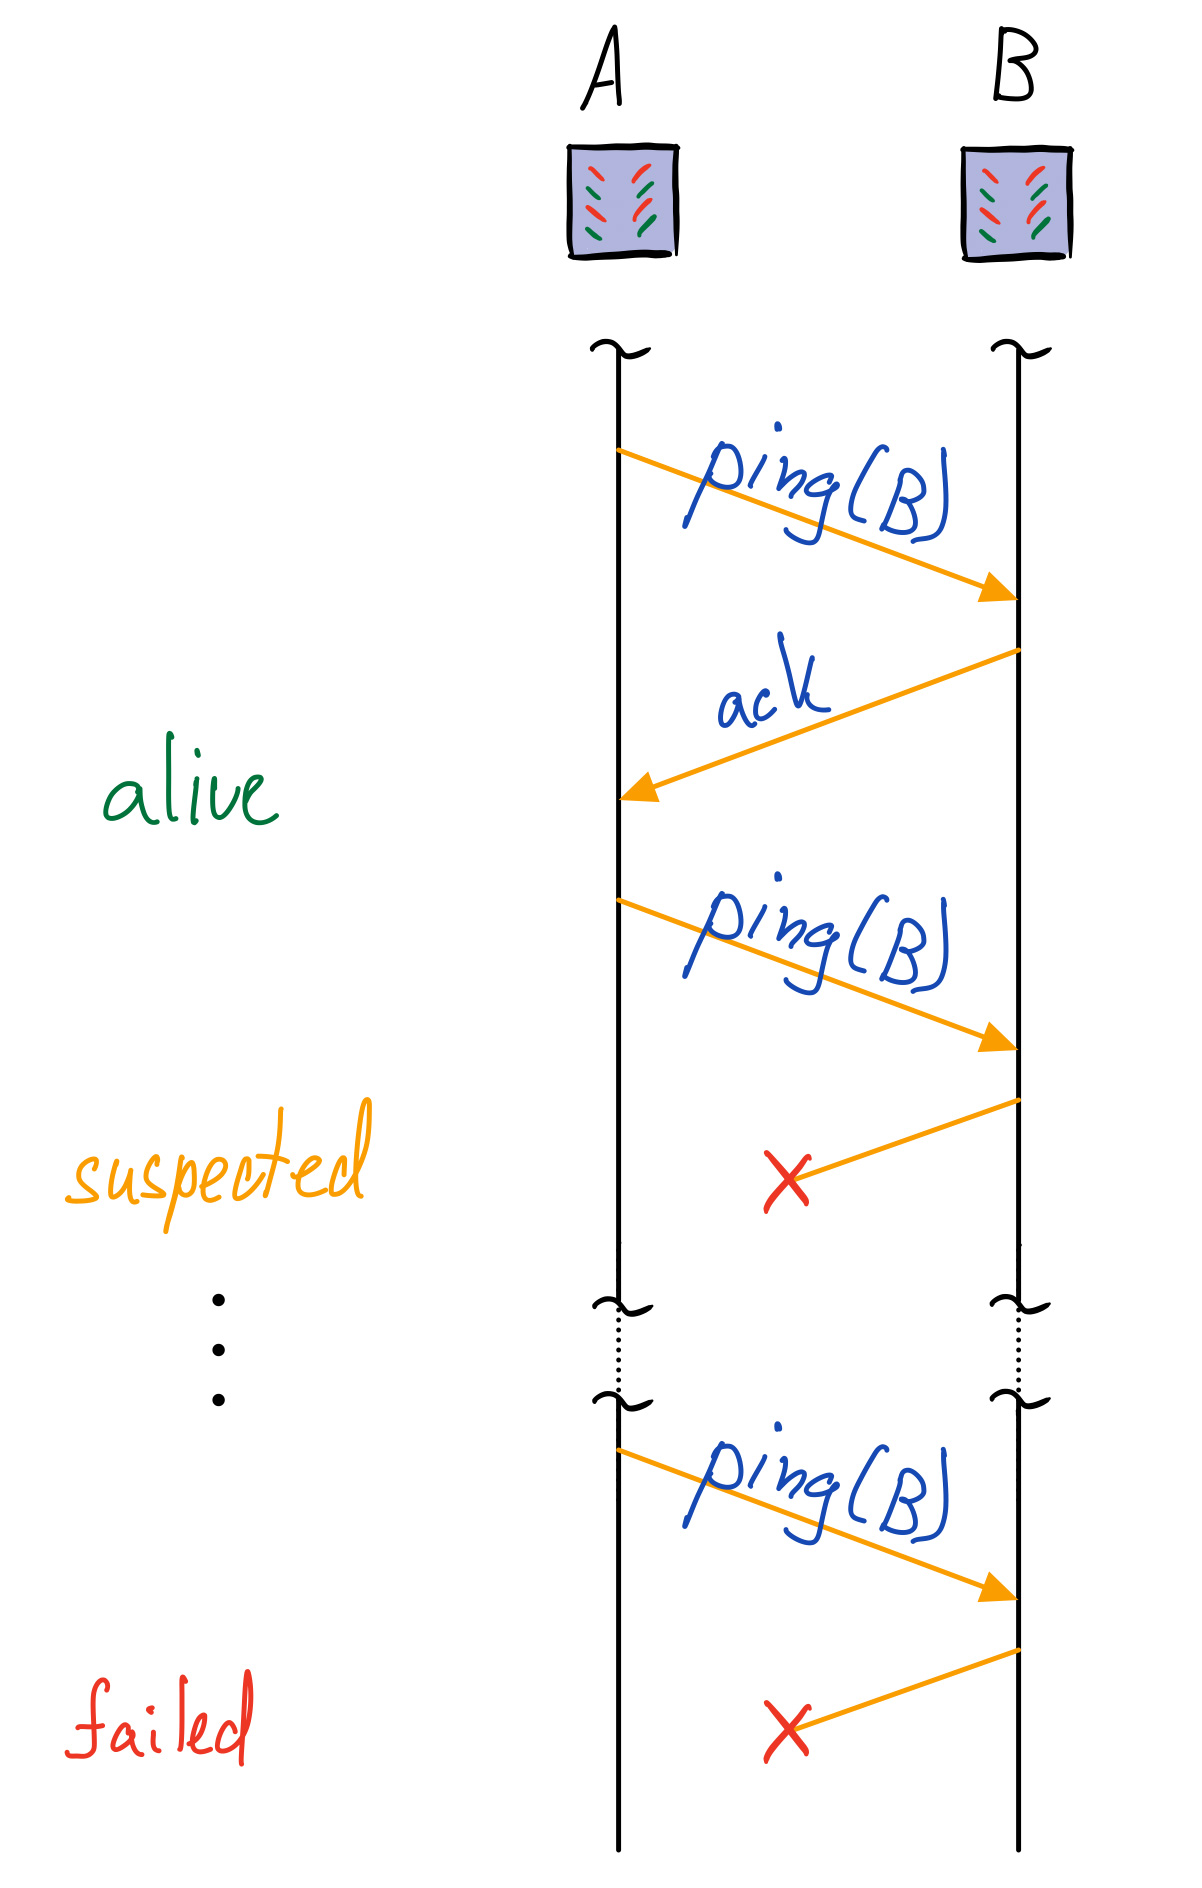 A B
ping(B)
ack
alive
ping(B)
suspected
ping(B)
failed